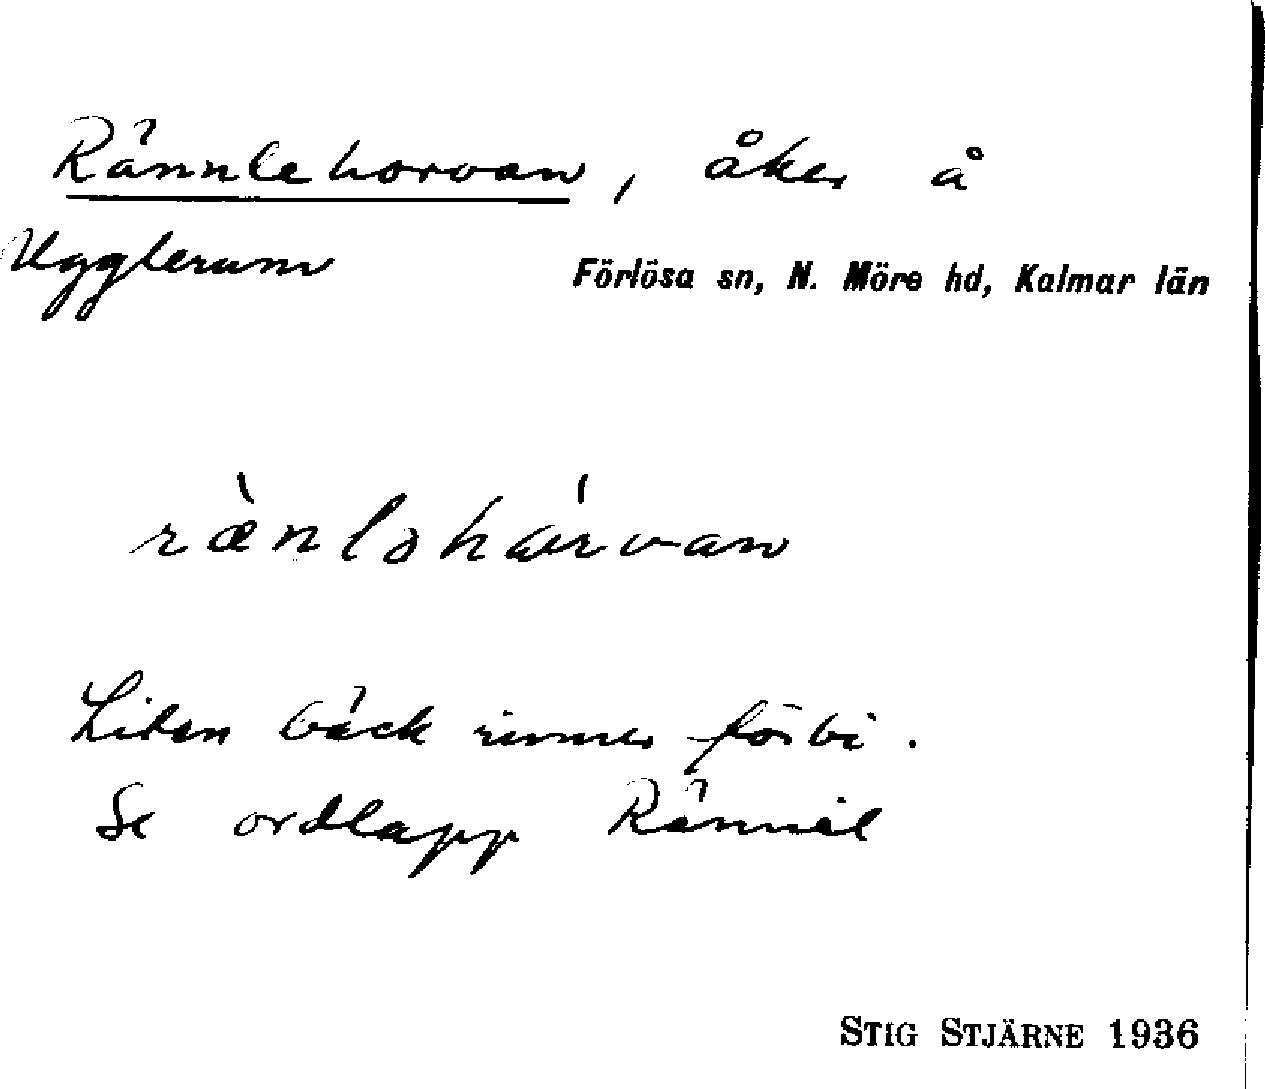 Rännlehorvan, åker å
Ugglerum
Förlösa sn, N. Möre hd, Kalmar län
rænləhårvan
Liten bäck rinner förbi.
Se ordlapp Rännil
STIG STJÄRNE 1936